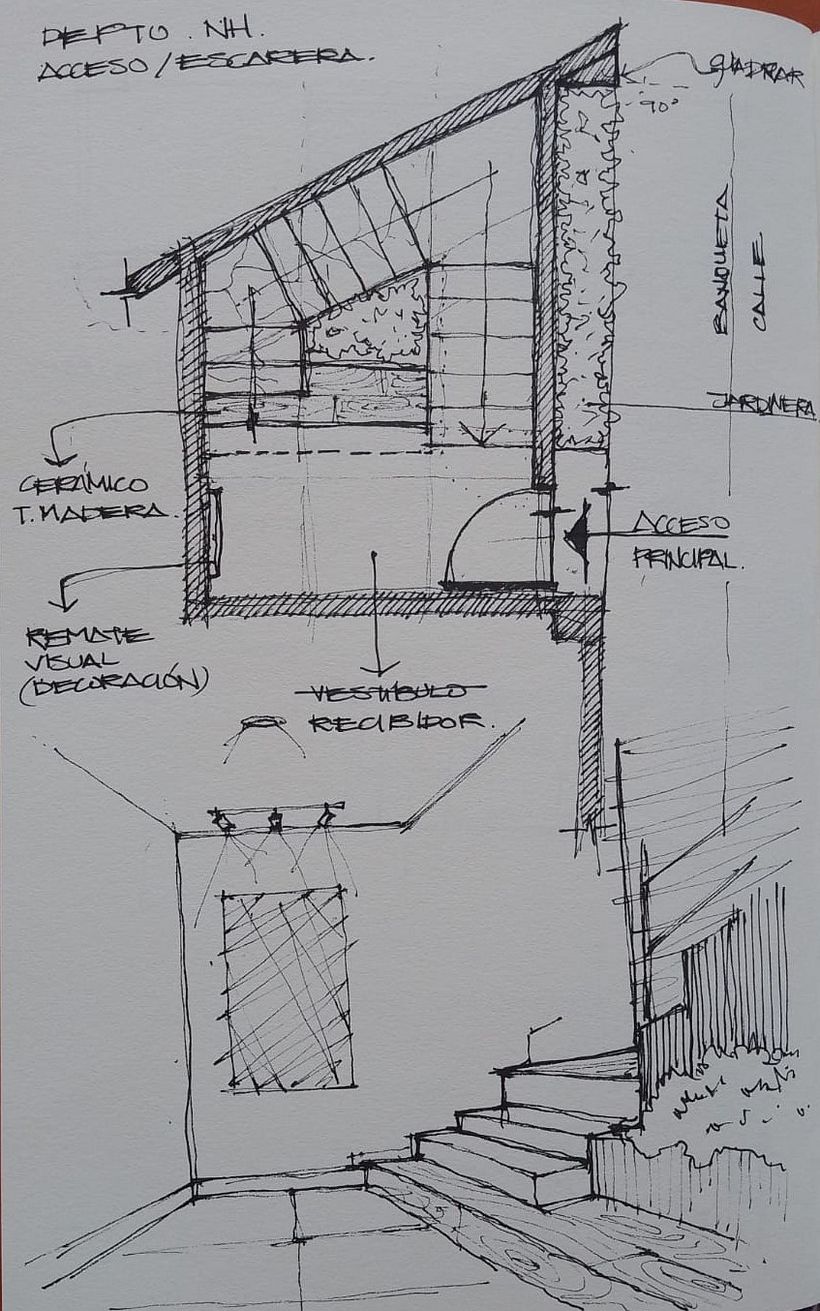 DEPTO. NH.
ACCESO/ESCARERA.
CUADRAR
90°
BANQUETA
CALLE
JARDINERA
CERÁMICO
T. MADERA.
ACCESO
PRINCIPAL.
REMATE
VISUAL
(DECORACIÓN)
VESTÍBULO
RECIBIDOR.